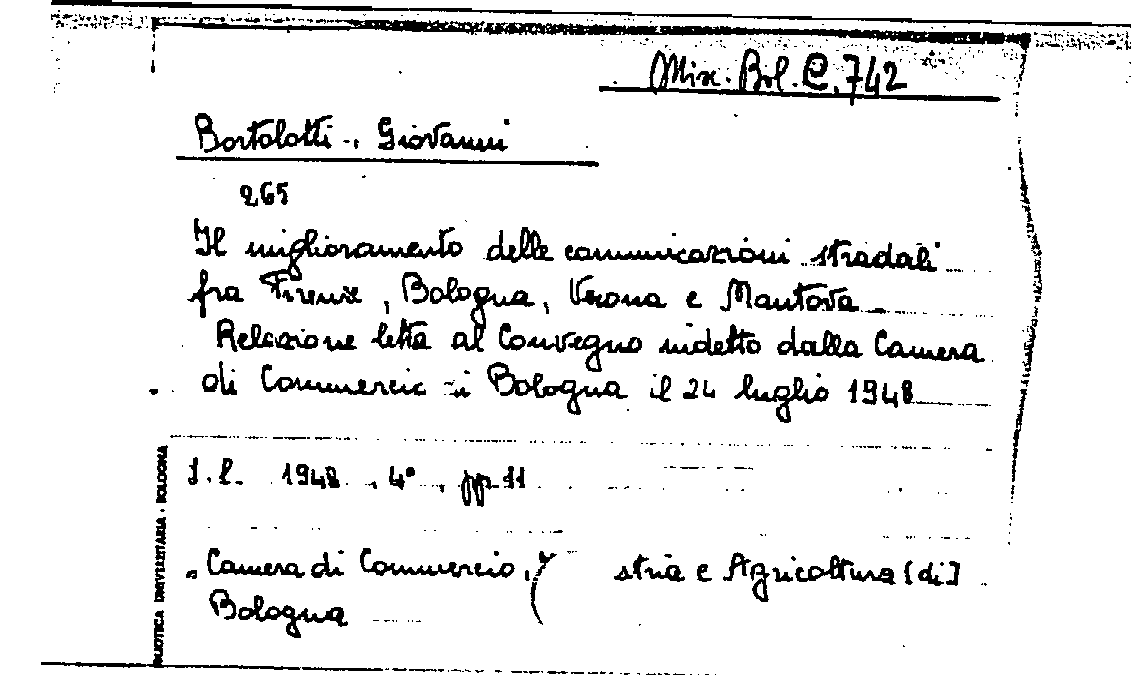 Misc. Bol. C. 742
Bortolotti, Giovanni
265
Il miglioramento delle comunicazioni stradali
fra Firenze, Bologna, Verona e Mantova
Relazione letta al Convegno indetto dalla Camera
di Commercio di Bologna il 24 luglio 1948
S. l. 1948, 4°, pp. 11
Camera di Commercio, stria e Agricoltura [di]
Bologna
BLIOTECA UNIVERSITARIA - BOLOGNA